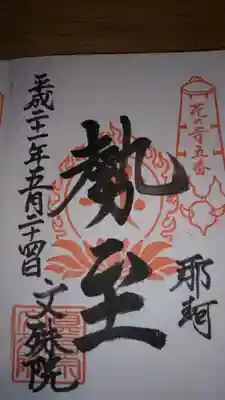 花の寺五番
勢至
耶馬
平成二十一年五月二十四日
文殊院